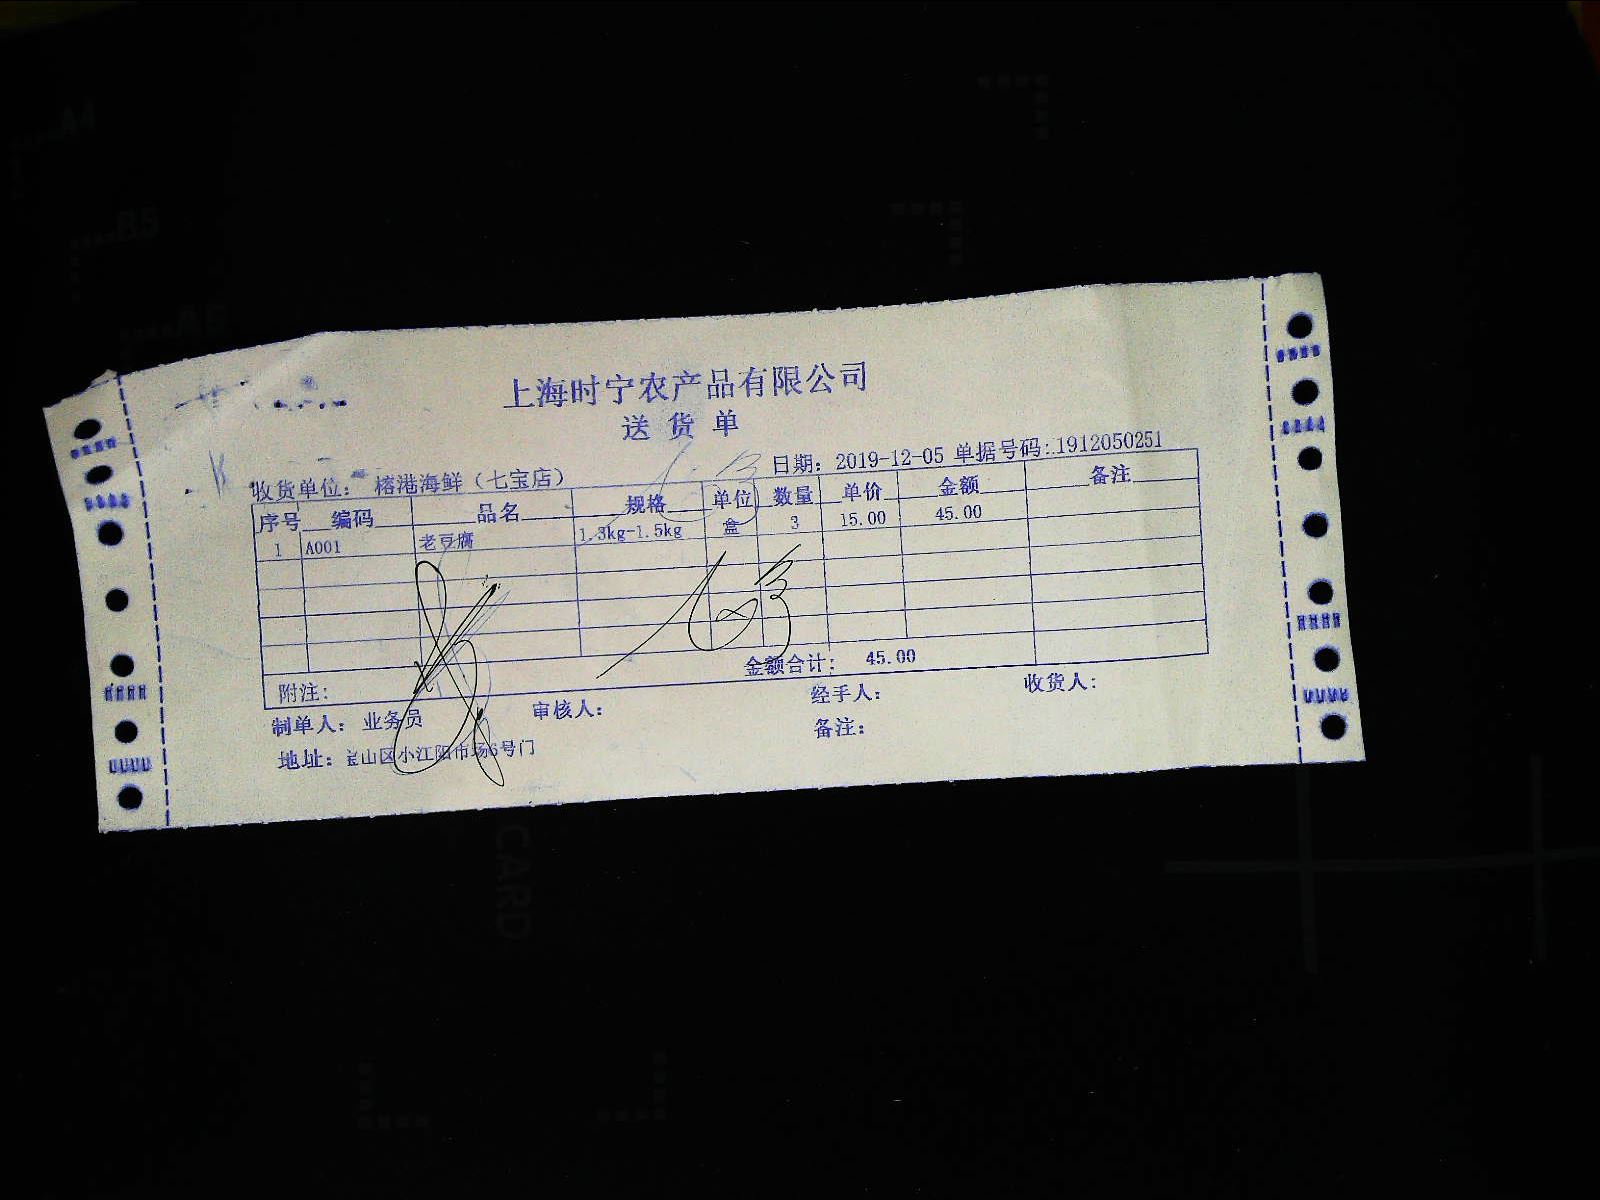 上海时宁农产品有限公司
送货单
收货单位: 榕港海鲜（七宝店） 日期: 2019-12-05 单据号码:1912050251
序号 编码 品名 规格 单位 数量 单价 金额 备注
1 A001 老豆腐 1.3kg-1.5kg 盒 3 15.00 45.00
金额合计: 45.00
附注:
制单人: 业务员 审核人: 经手人: 收货人:
地址: 宝山区小江阳市场6号门 备注: